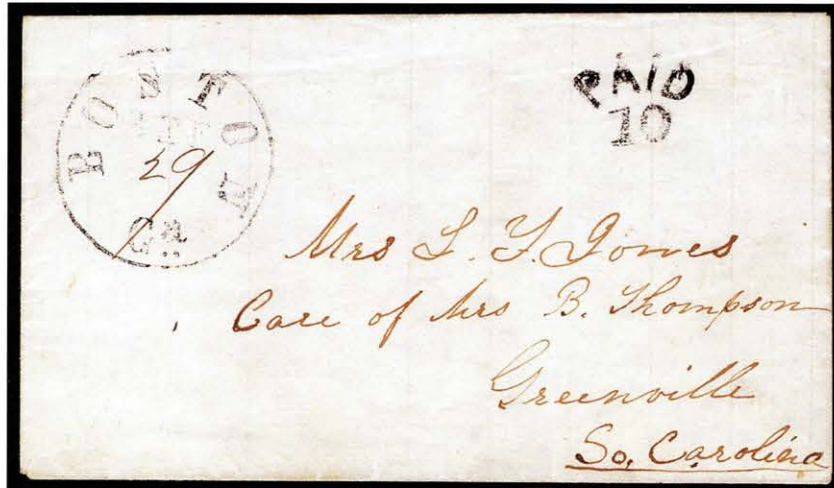 BOSTON
29
Ga
PAID
10
Mrs L. Y. Jones
Care of Mrs B. Thompson
Greenville
So. Carolina